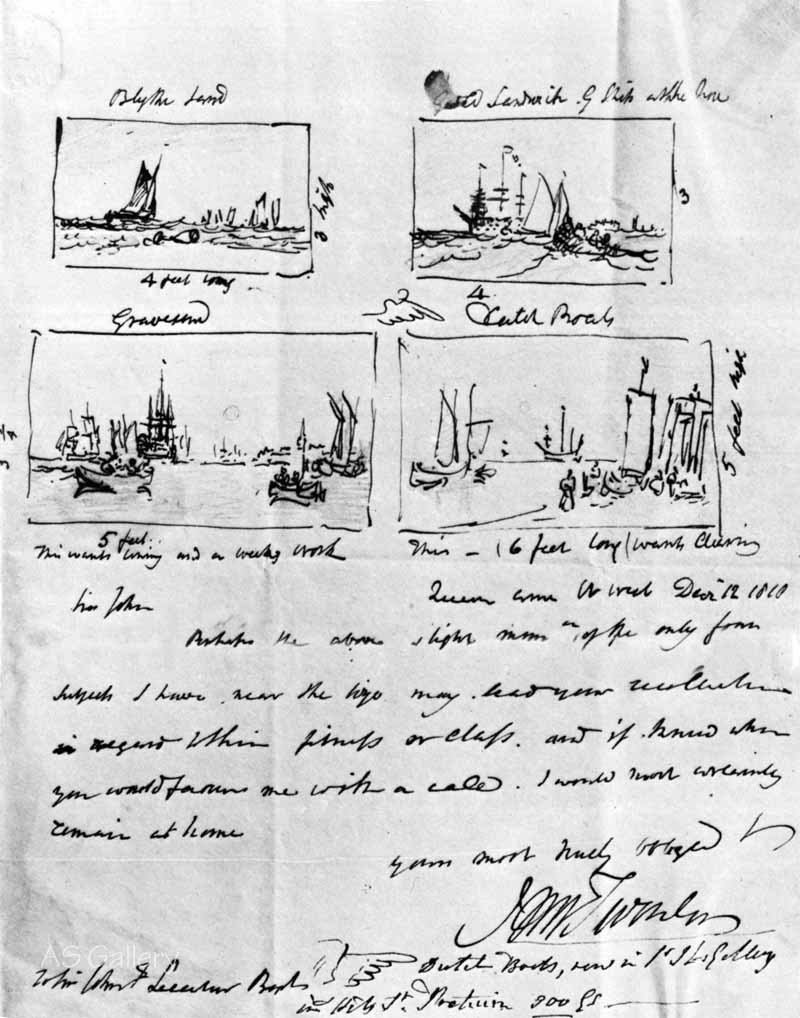 Blythe Sand
Sandwich
3 high
3
4 feet long
4
Gravesend
Dutch Boats
5 feet high
5 feet
This wants lining and a weeks work
This – (6 feet long) wants
Sir John
Queen Anne St West Decr 12 1810
Perhaps the above slight mem of the only four
subjects I have near the size may lead your recollection
in regard to their fitness or class. and if I knew when
you would favour me with a call. I would most certainly
remain at home
yours most truly obliged
J M W Turner
Dutch Boats, now in Sr J L's Gallery
Sir John F Leicester Bart
in Hill St 300 Gs
AS Gallery